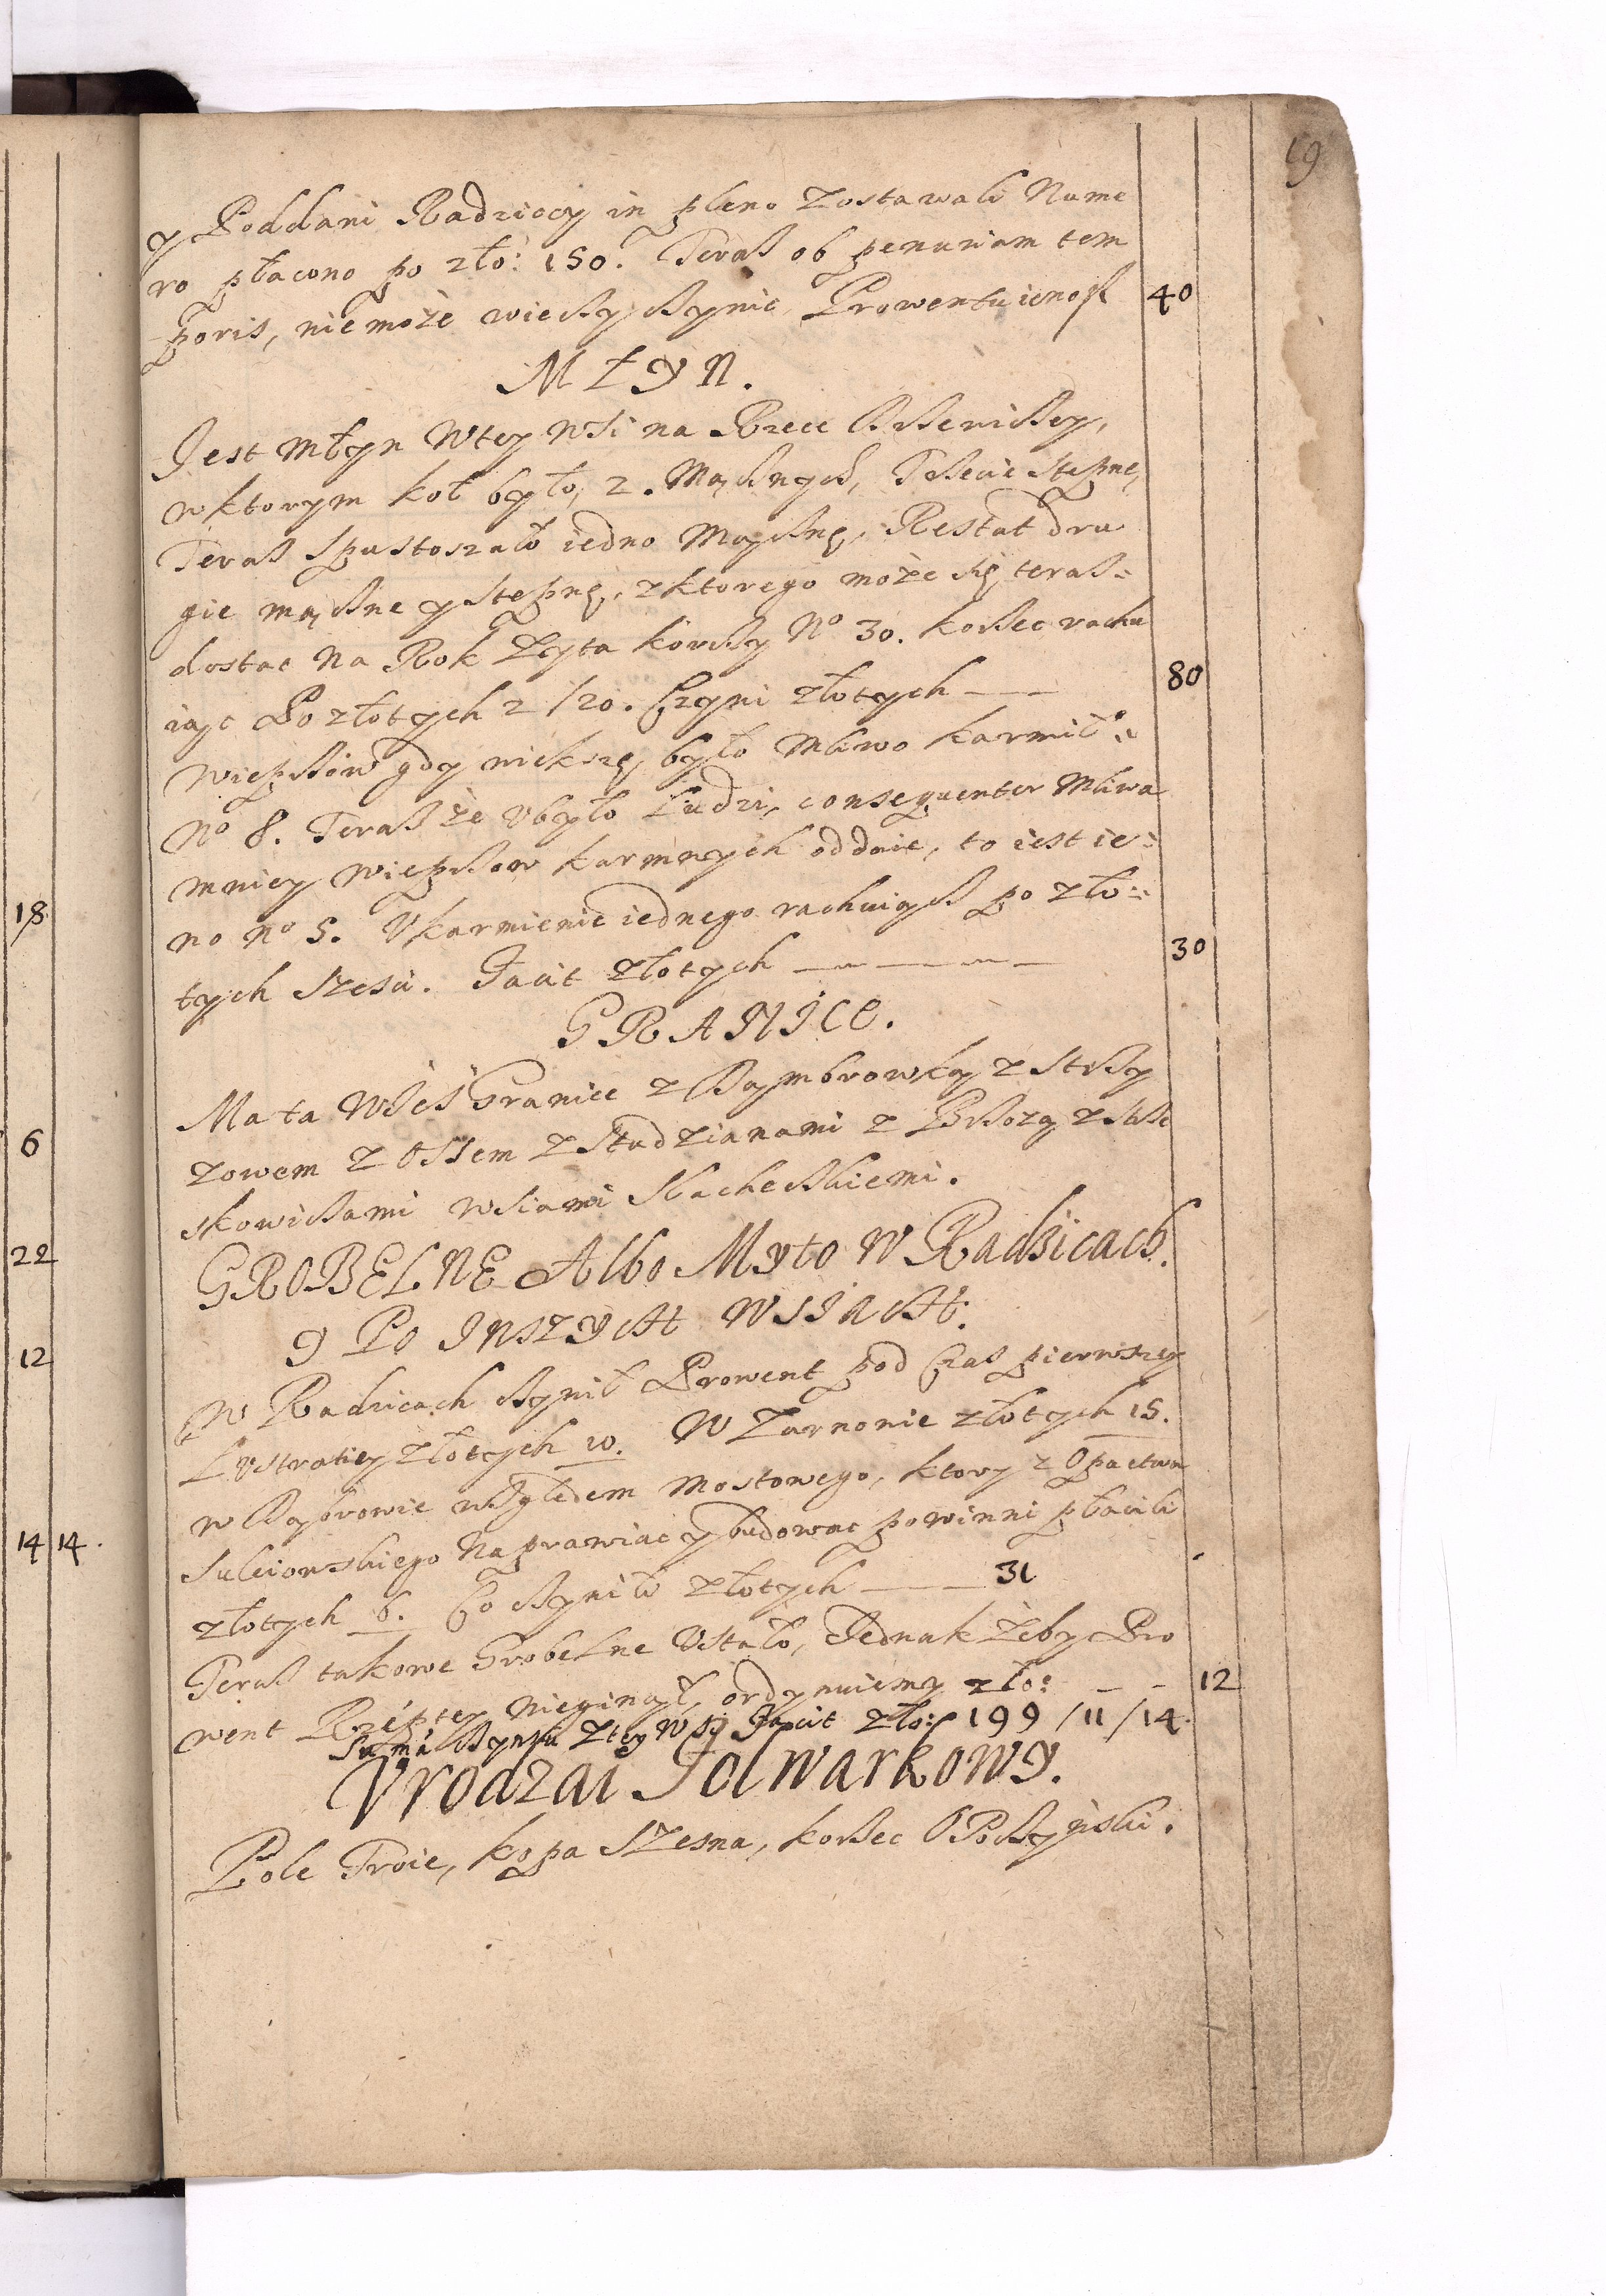 19
y Poddani Radziccy in pleno zostawali Nume
ro płacono po zło: 150. Teraß ob penuriam tem
poris, niemoże wiecky czynic Prowentu ieno zł 40
MŁYN.
Jest Młyn wtey wsi na Rzece
wktorym koł było, 2. Mącznych, Trzecie Stępne,
Teraß Spustoszało iedno Mączne, Restat dru
gie mączne y Stępne, zktorego może się teraß=
dostac Na Rok Zyta korcy No 30. korzec rachu
iąc Po złotych 2/20. Czyni złotych 80
Wieprzow gdy wieksze było Mliwo karmił:
No 8. Teraß że Vbyło Ludzi, consequenter Mliwa
mniey wieprzow karmnych oddaie, to iest ie:
no no 5. Vkarmienie iednego rachuiąc po zło:
tych Szesci. Facit złotych 30
GRANICE.
Ma ta Wieś Granice z Dąmbrowką z Strzy
zowem z Ossem z Studzianami z Brzozą z
skowicami wsiami Slacheckiemi.
GROBELNE Albo Myto W Radzicach.
y Po INSZYCH WSIACH.
W Radzicach czynił Prowent pod Czas pierwszey
Lustratiey złotych 10. W Zarnowie złotych 15.
w Dąbrowie względem Mostowego, ktory z Opactwa
Sulciowskiego Naprawiac y budowac powinni płacili
złotych 6. Co czyniło złotych 31
Teraß takowe Grobelne Vstało, Jednak żeby Pro
went Rzeptey nieginął, ordynuiemy zło: 12
Suma Czynszu Ztey Wsi Facit zło: 199/11/14.
Vrodzai Folwarkowy.
Pole Troie, kopa Szesna, korzec Opoczyński.
18
6
22
12
14 14.